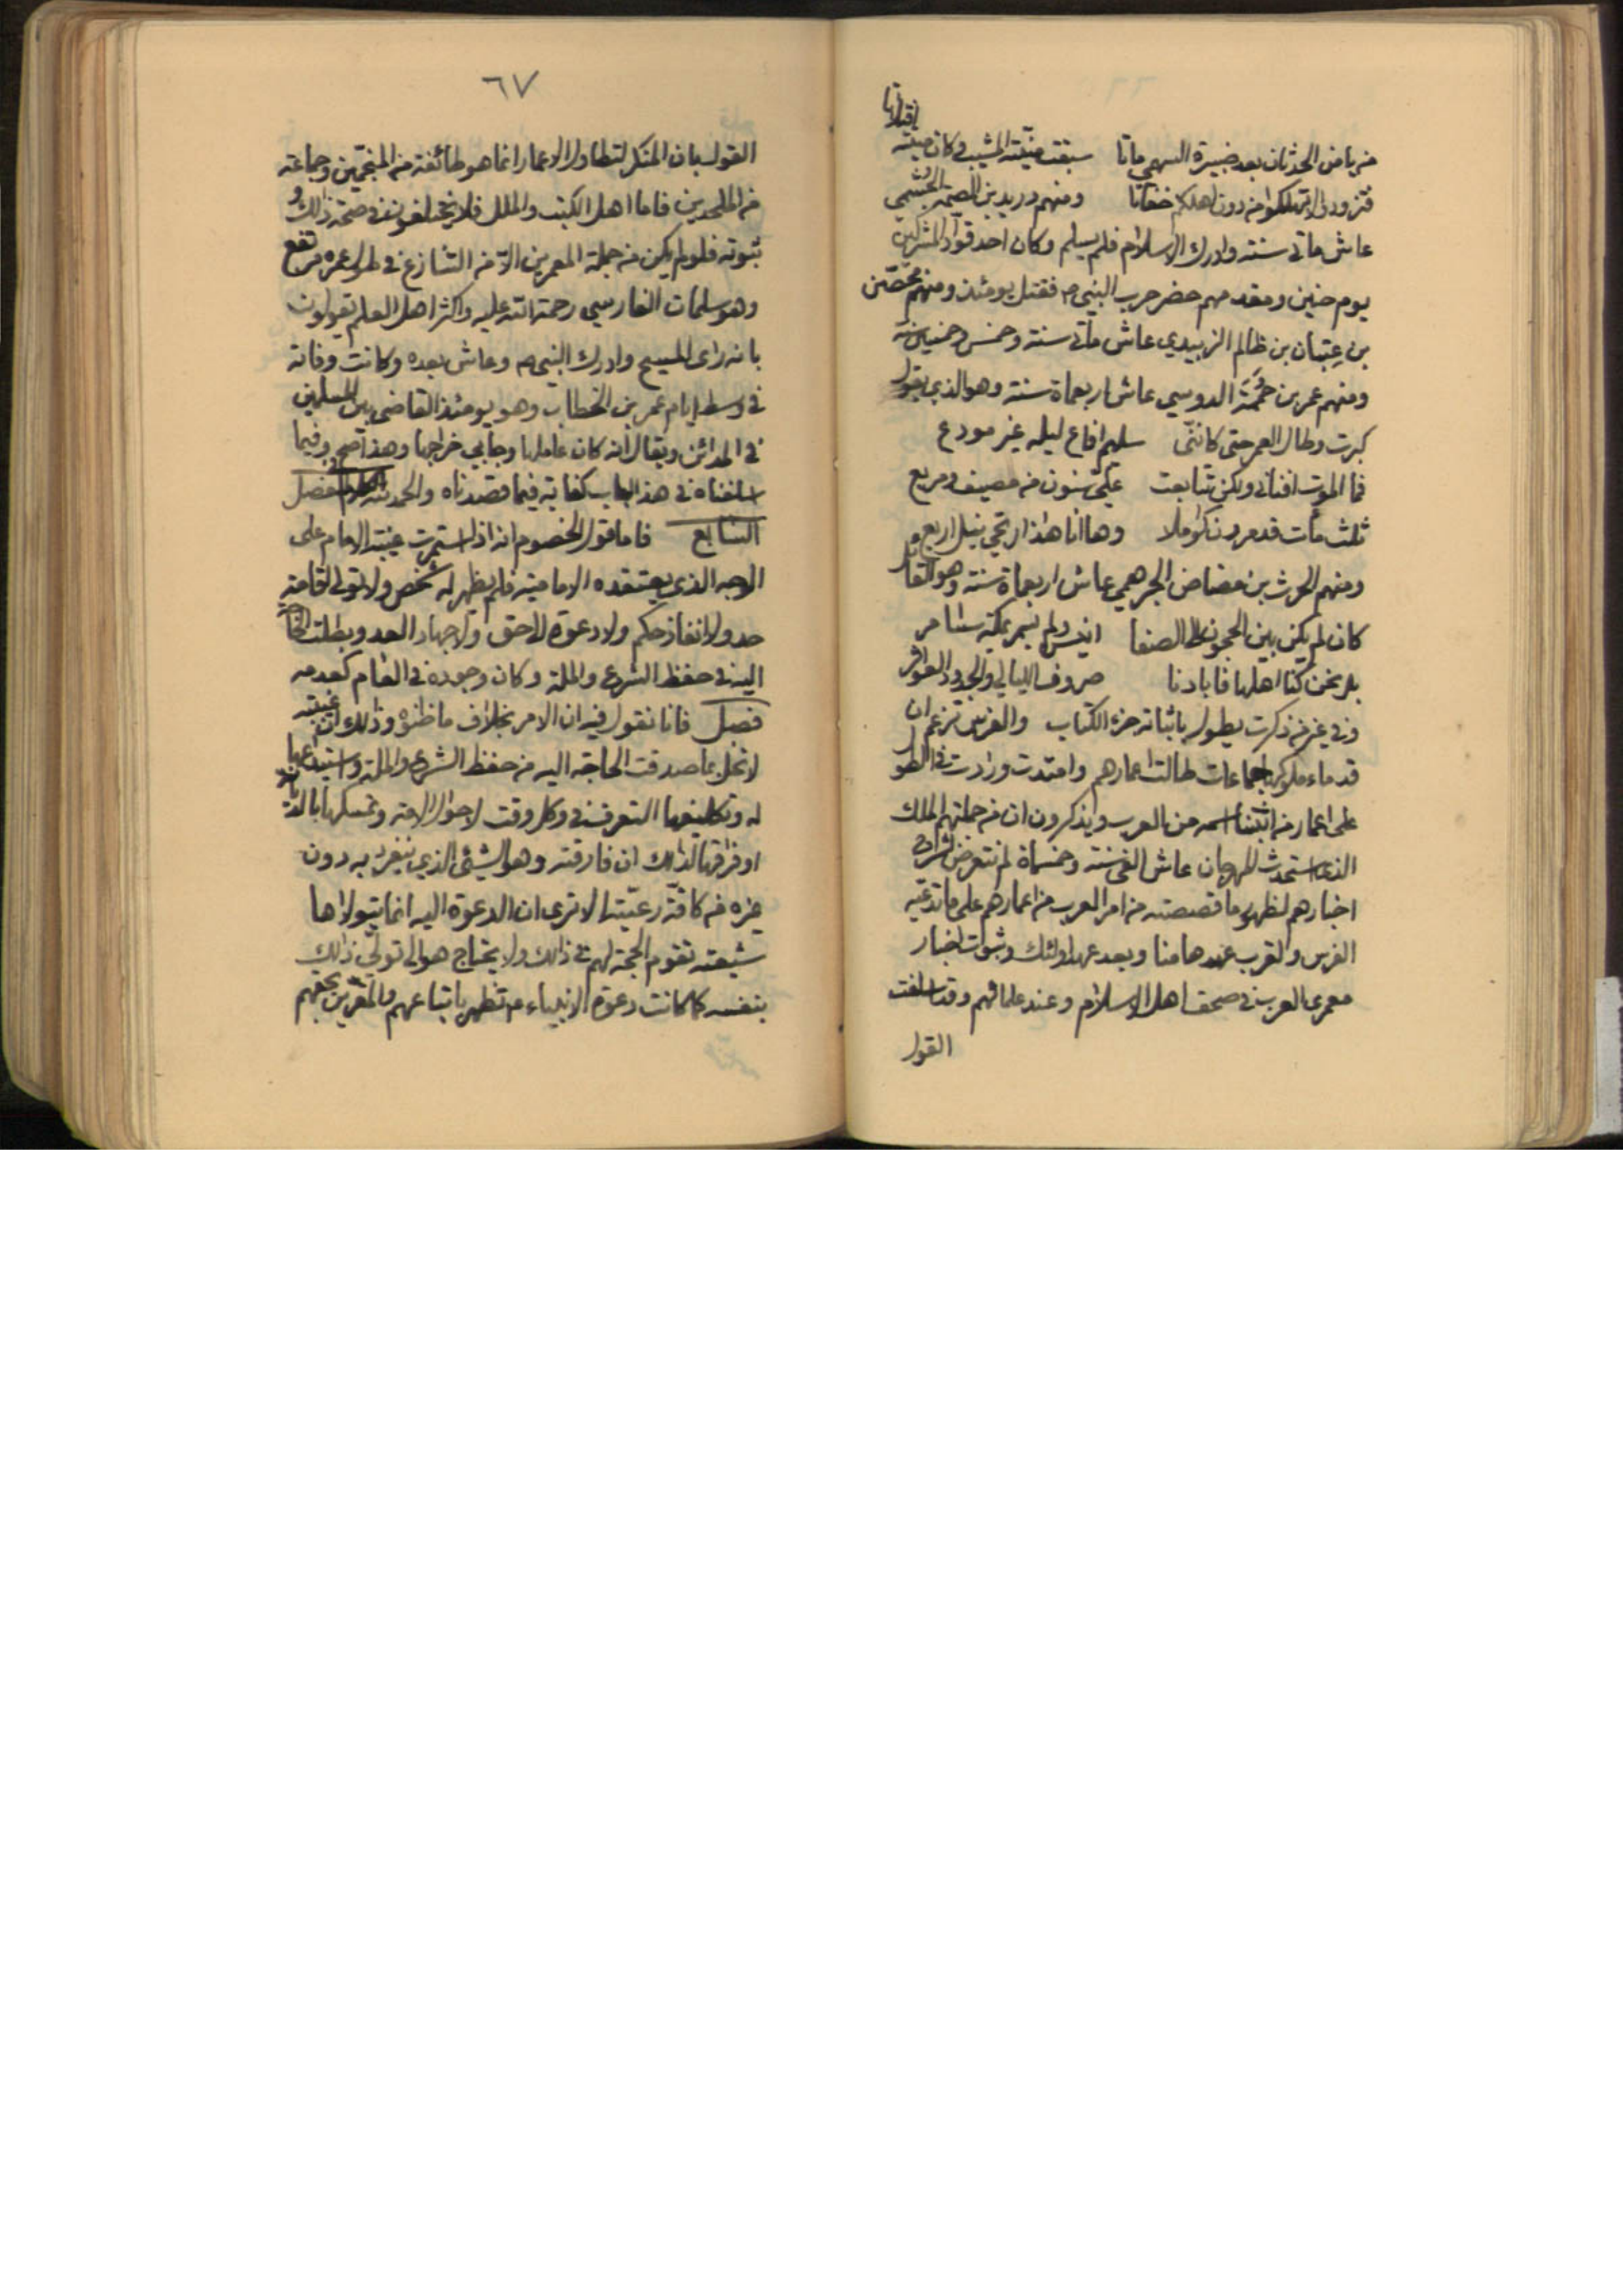 من يأمن الحدثان بعد ضبيرة السهمي ماتا سبقت منيته المشيب وكان ميتته
افتلاتا
فتزودوا لا تهلكوا من دون اهلكم خفاتا ومنهم دريد بن الصمة الجشمي
عاش مأتي سنة وادرك الاسلام فلم يسلم وكان احد قواد المشركين
يوم حنين ومقدمهم حضر حرب النبي ص فقتل يومئذ ومنهم محصن
بن عتبان بن ظالم الزبيدي عاش مأتي سنة وخمس وخمسين سنة
ومنهم عمر بن حممة الدوسي عاش اربعماة سنة وهو الذي يقول
كبرت وطال العمر حتى كانني سليم افاع ليله غير مودع
فما الموت افناني ولكن تتابعت علي سنون من مصيف ومربع
ثلث مأت قد مررن كواملا وها انا هذا ارتجي نيل اربع
ومنهم الحرث بن مضاض الجرهمي عاش اربعماة سنة وهو القائل
كان لم يكن بين الحجون الى الصفا انيس ولم يسمر بمكة سامر
بلى نحن كنا اهلها فابادنا صروف الليالي والجدود العواثر
وفي غير من ذكرت يطول باثباته جزء الكتاب والفرس تزعم ان
قدماء ملوكها جماعات طالت اعمارهم وامتدت وزادت في الطول
على اعمار من اثبتنا اسمه من العرب ويذكرون ان من جملتهم الملك
الذي استحدث المهرجان عاش الفي سنة وخمسماة لم نتعرض لشرح
اخبارهم لظهور ما قصصته من امر العرب من اعمارهم على ما تدعيه
الفرس ولقرب عهدها منا وبعد عهد اولئك وثبوت اخبار
معمري العرب في صحف اهل الاسلام وعند علمائهم وقد اسلفت
القول
٦٧
القول بان المنكر لتطاول الاعمار انما هو طائفة من المنجمين وجماعة
من الملحدين فاما اهل الكتب والملل فلا يختلفون في صحة ذلك و
ثبوته فلو لم يكن من جملة المعمرين الا من التنازع في طول عمره مرتفع
وهو سلمان الفارسي رحمة الله عليه واكثر اهل العلم يقولون
بانه راى المسيح وادرك النبي ص وعاش بعده وكانت وفاته
في وسط ايام عمر بن الخطاب وهو يومئذ القاضي بين المسلمين
في المدائن ويقال انه كان عاملها وجابي خراجها وهذا اصح وفيما
اسلفناه في هذا الباب كفاية فيما قصدناه والحمد لله الفصل
السابع فاما قول الخصوم انه اذا استمرت غيبة الامام على
الوجه الذي يعتقده الامامية فلم يظهر له شخص ولا تولى اقامة
حد ولا انفاذ حكم ولا دعوة الى حق ولا جهاد العدو وبطلت الحاجة
اليه في حفظ الشرع والملة وكان وجوده في العالم كعدمه
فصل فانا نقول فيه ان الامر بخلاف ما ظنوه وذلك ان غيبته
لا تخل بما صدقت الحاجة اليه من حفظ الشرع والملة واستيداعها
له وتكليفها التعرف في وكل وقت لاحوال الامة وتمسكها بالديانة
او فراقها لذلك ان فارقته وهو الشيئ الذي ينفرد به دون
غيره من كافة رعيته الا ترى ان الدعوة اليه انما يتولاها
شيعته تقوم الحجة لهم في ذلك ولا يحتاج هو الى تولي ذلك
بنفسه كما كانت دعوة الانبياء ع تظهر باتباعهم والمقرين بحقهم